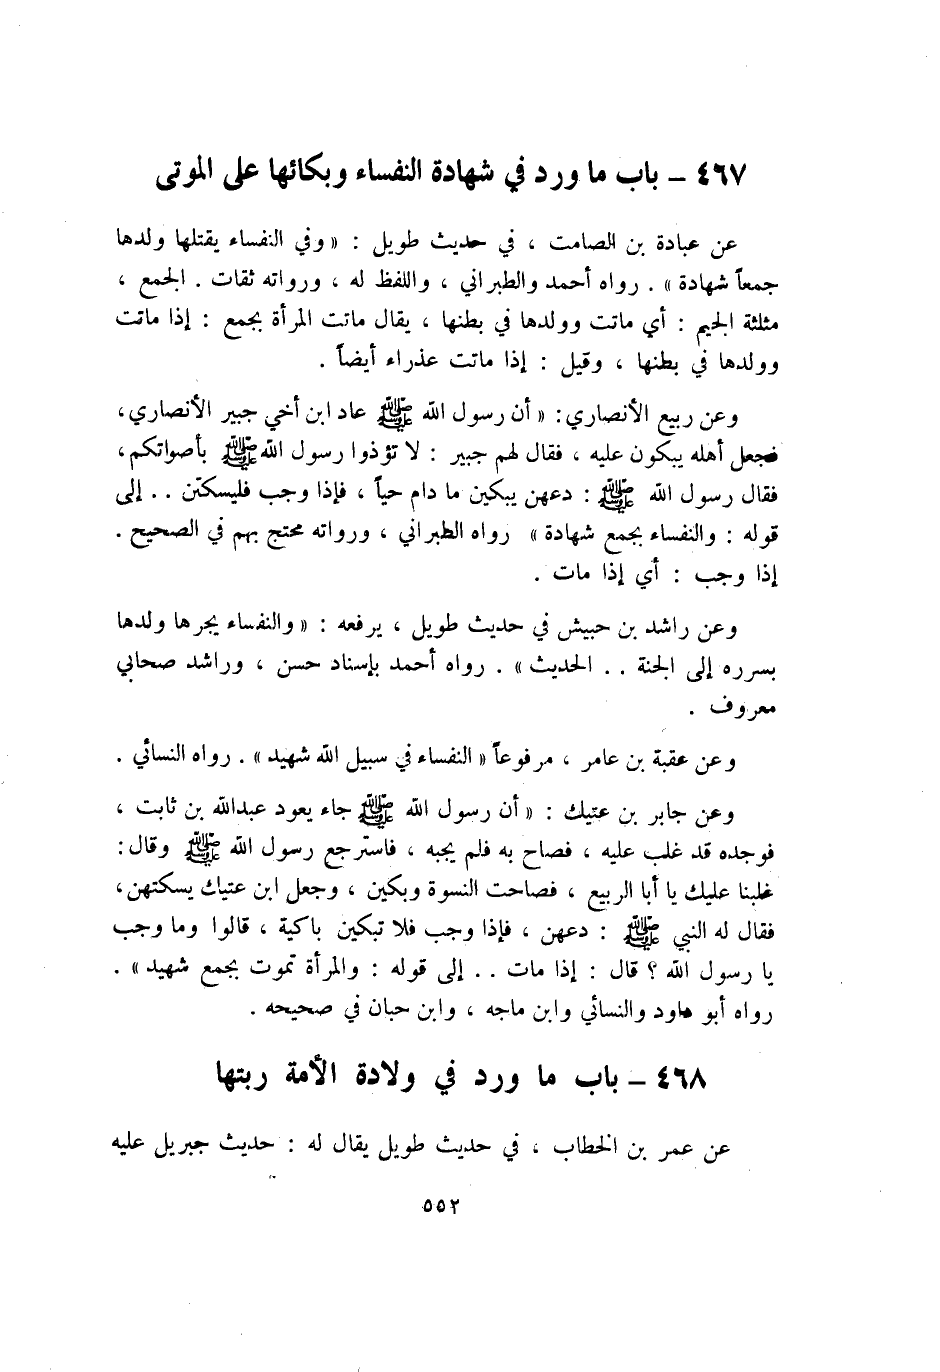 ٤٦٧ - باب ما ورد في شهادة النفساء وبكائها على الموتى
عن عبادة بن الصامت ، في حديث طويل : « وفي النفساء يقتلها ولدها
جمعاً شهادة » . رواه أحمد والطبراني ، واللفظ له ، ورواته ثقات . الجمع ،
مثلثة الجيم : أي ماتت وولدها في بطنها ، يقال ماتت المرأة بجمع : إذا ماتت
وولدها في بطنها ، وقيل : إذا ماتت عذراء أيضاً .
وعن ربيع الأنصاري : « أن رسول الله ﷺ عاد ابن أخي جبير الأنصاري ،
فجعل أهله يبكون عليه ، فقال لهم جبير : لا تؤذوا رسول الله ﷺ بأصواتكم ،
فقال رسول الله ﷺ : دعهن يبكين ما دام حياً ، فإذا وجب فليسكتن . . إلى
قوله : والنفساء بجمع شهادة » رواه الطبراني ، ورواته محتج بهم في الصحيح .
إذا وجب : أي إذا مات .
وعن راشد بن حبيش في حديث طويل ، يرفعه : « والنفساء يجرها ولدها
بسرره إلى الجنة . . الحديث » . رواه أحمد بإسناد حسن ، وراشد صحابي
معروف .
وعن عقبة بن عامر ، مرفوعاً « النفساء في سبيل الله شهيد » . رواه النسائي .
وعن جابر بن عتيك : « أن رسول الله ﷺ جاء يعود عبدالله بن ثابت ،
فوجده قد غلب عليه ، فصاح به فلم يجبه ، فاسترجع رسول الله ﷺ وقال :
غلبنا عليك يا أبا الربيع ، فصاحت النسوة وبكين ، وجعل ابن عتيك يسكتهن ،
فقال له النبي ﷺ : دعهن ، فإذا وجب فلا تبكين باكية ، قالوا وما وجب
يا رسول الله ؟ قال : إذا مات . . إلى قوله : والمرأة تموت بجمع شهيد » .
رواه أبو داود والنسائي وابن ماجه ، وابن حبان في صحيحه .
٤٦٨ - باب ما ورد في ولادة الأمة ربتها
عن عمر بن الخطاب ، في حديث طويل يقال له : حديث جبريل عليه
٥٥٢